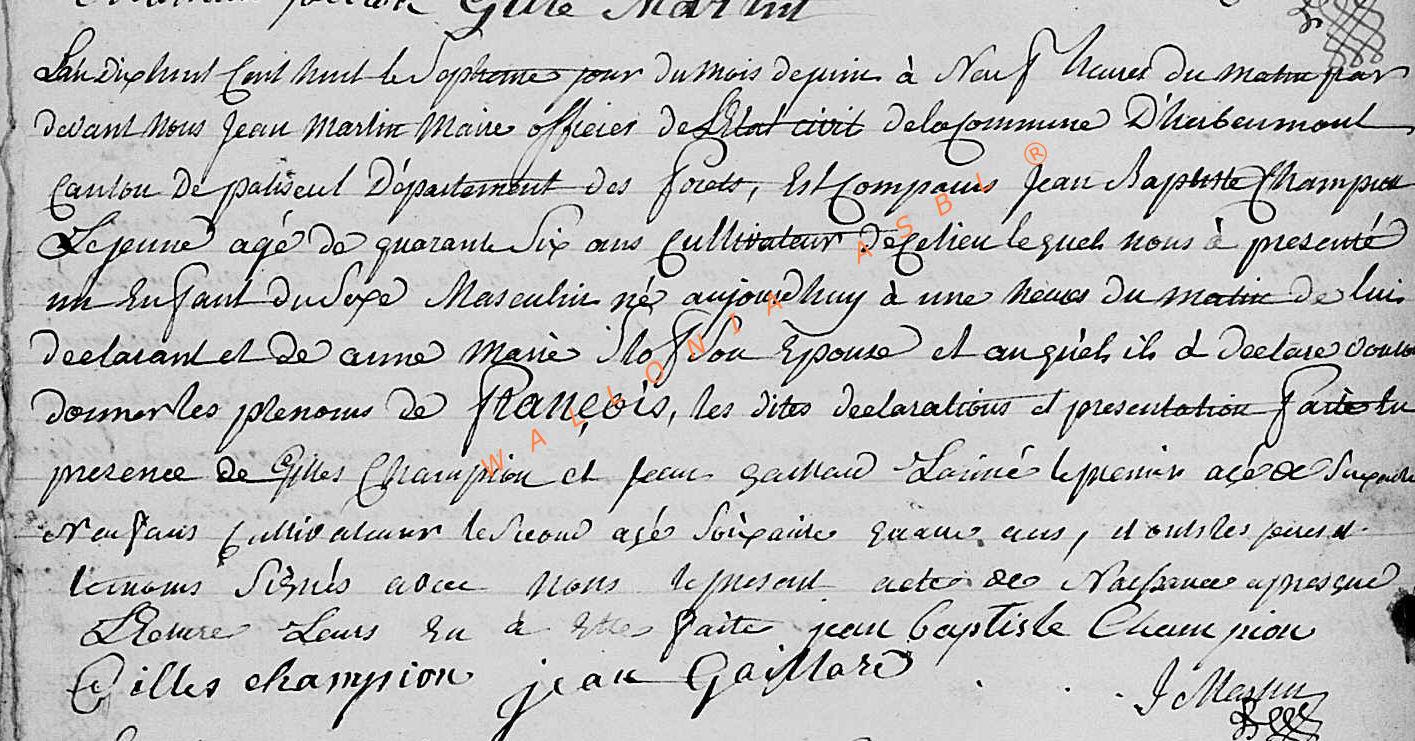 Gille Martin
L'an dixhuit Cent huit le Septieme jour du mois de juin à Neuf heures du matin par
devant nous Jean Martin Maire officier de L'Etat civil de la Commune D'herbeumont
Canton de paliseul Département des Forets, Est Comparus Jean Baptiste Champion
Lejeune agé de quarante Six ans Cultivateur de Celieu lequel nous à presenté
un Enfant du Sexe Masculin né aujourdhuy à une heures du matin de lui
declarant et de anne Marie Son Epouse et auquel il à declare vouloir
donner les prenoms de François, les dites declarations et presentation Faite En
presence de Gilles Champion et jean gaillard Lainé le premier agé de Soixante
Neuf ans Cultivateur le Second agé Soixante ans, et ont les pere et
temoins Signés avec nous le present acte de Naissance apres que
Lecture Leurs En à Ette faite jean baptiste Champion
Gilles champion jean Gaillard
J Martin
WALLONIA ASBL ®